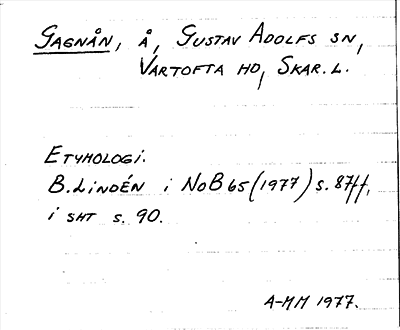 GAGNÅN, Å, GUSTAV ADOLFS SN,
VARTOFTA HD, SKAR. L.
ETYMOLOGI.
B. LINDÉN i NoB 65 (1977) s. 87ff,
i SHT s. 90.
A-MM 1977.